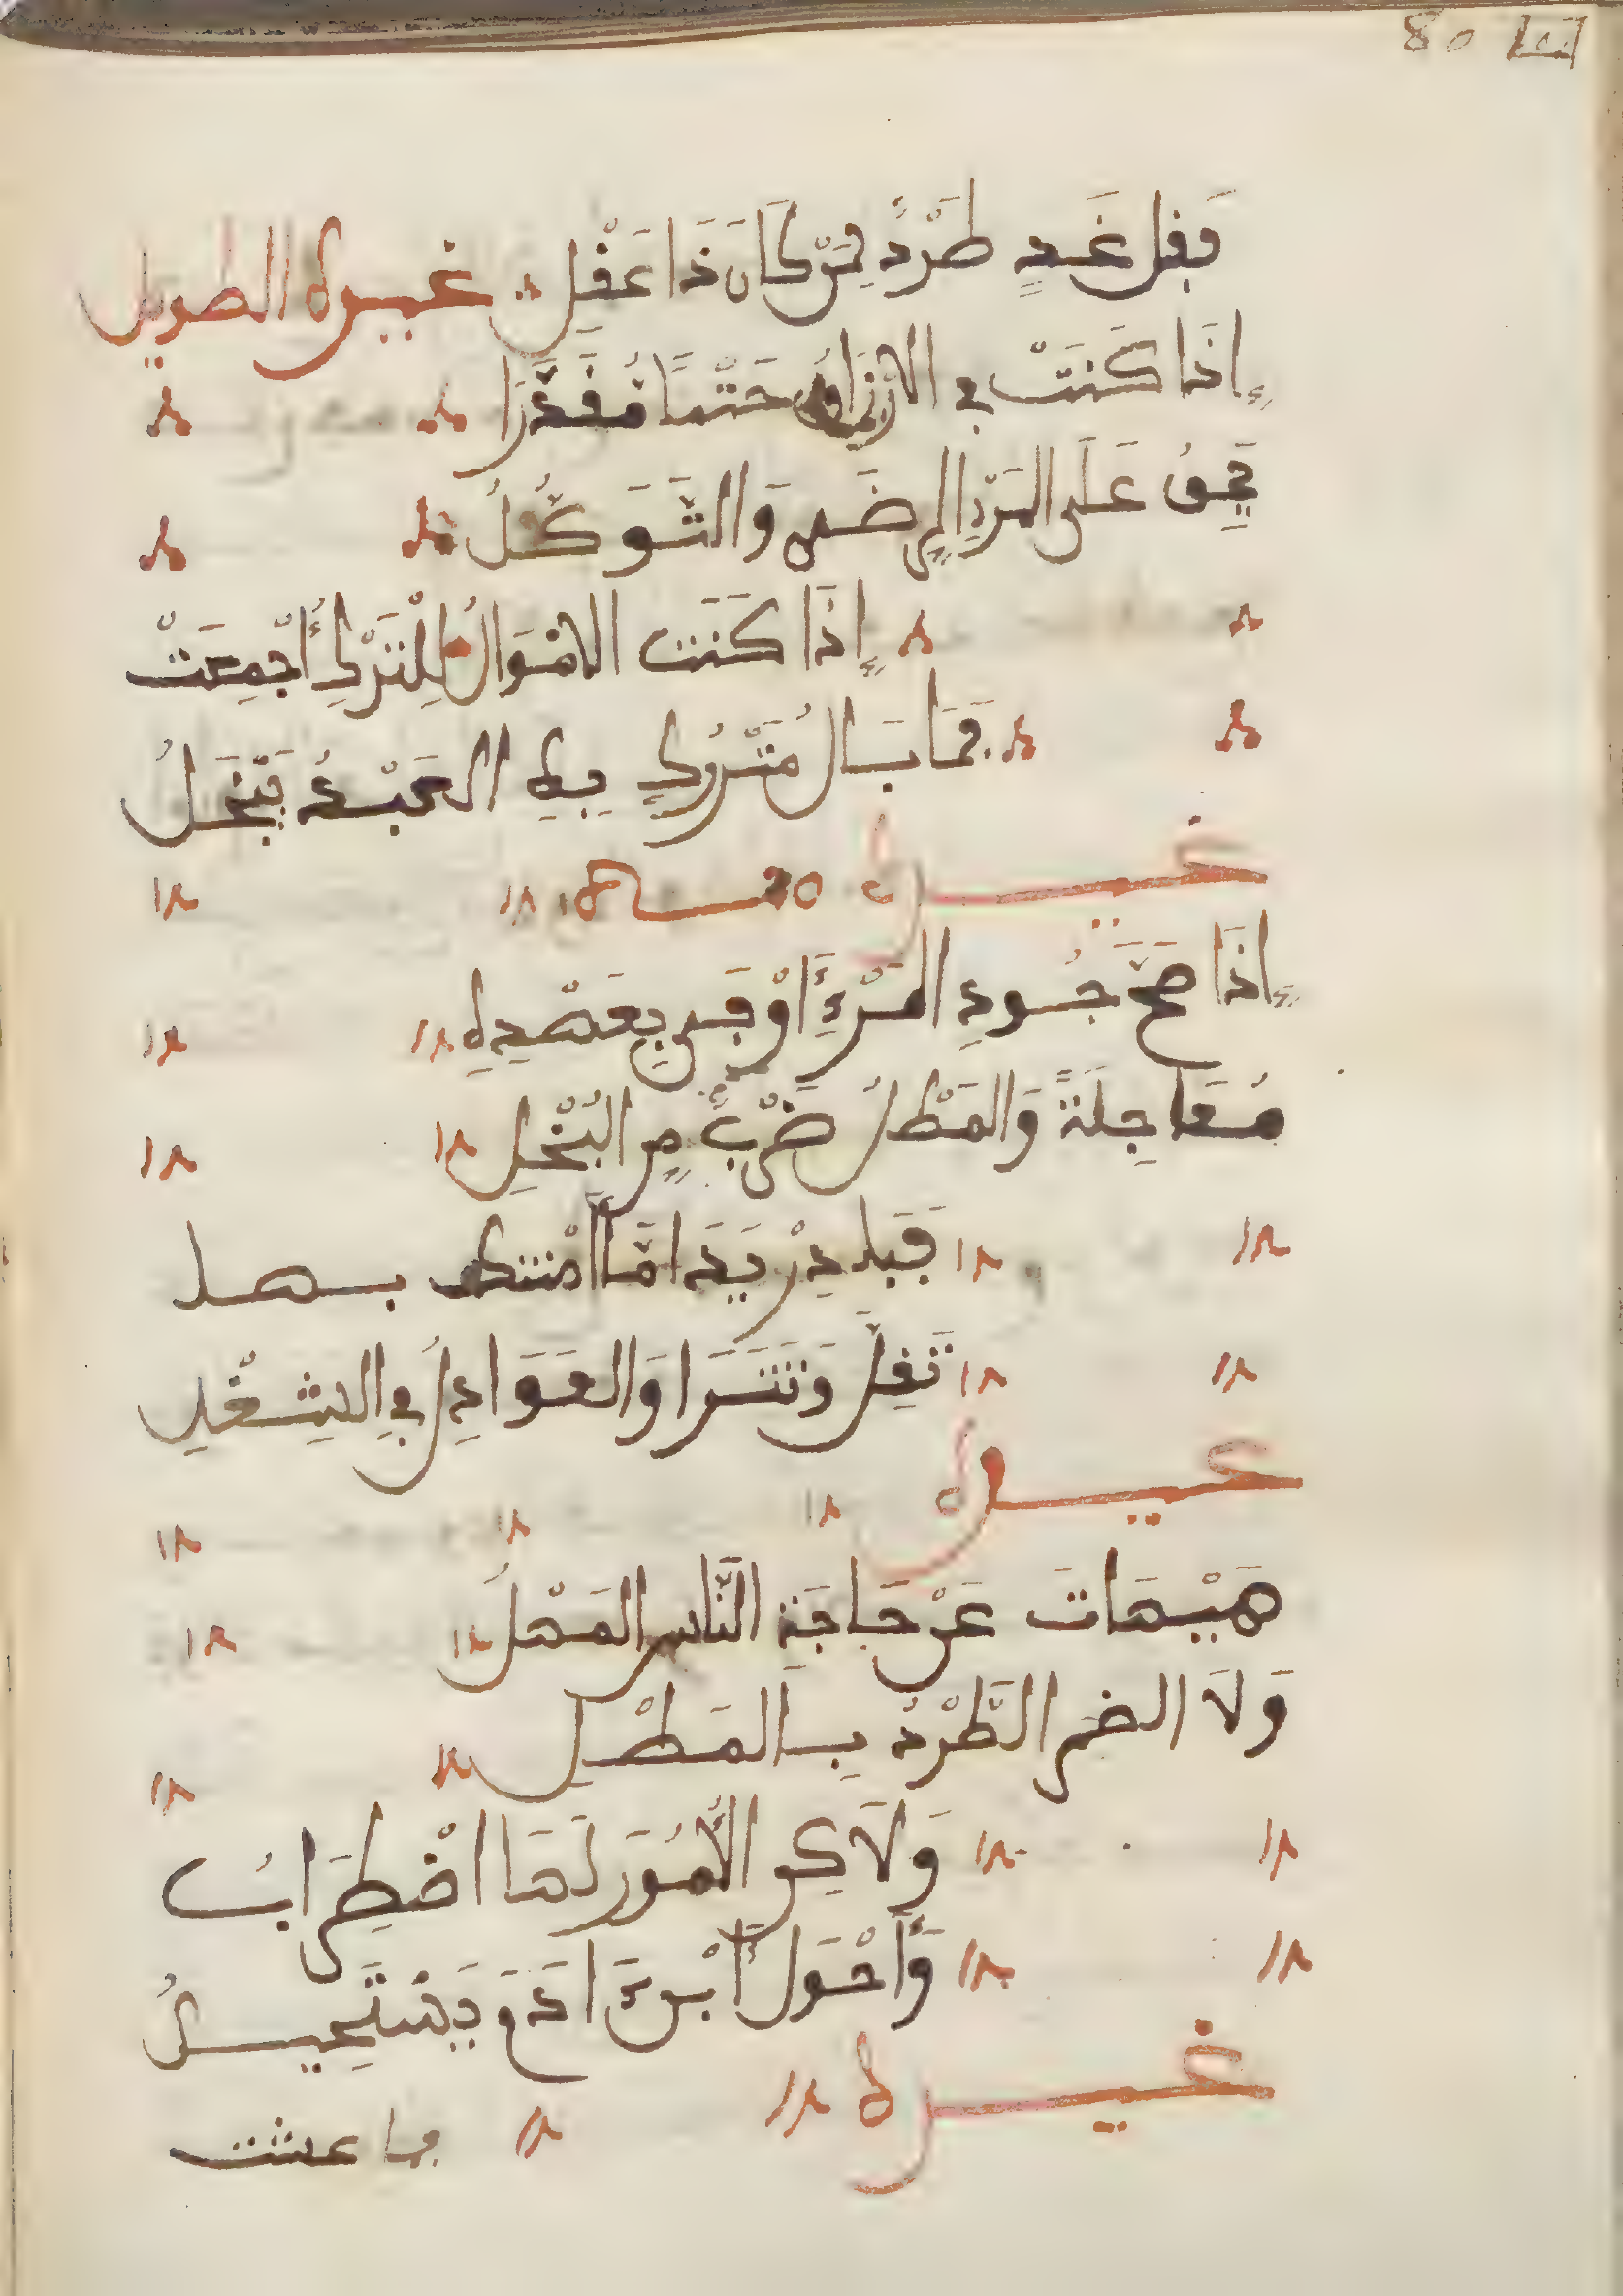 80
فقل غَدٍ طَرْدُ لمَنْ كَانَ ذَا عَقْلِ غيره الطويل
إِذَا كَنَتْ فِي الارْزَاقُ حَتْمًا مُقَدَّرَا
يَحِقُ عَلَى المَرْءِ الرِضَى وَالتَّوَكُّلُ
إِذَا كَنَت الامْوَالُ لِلتَرْكِ أُجْمِعَتْ
فَمَا بَالُ مَتْرُوكٍ بِهِ العَبْدُ يَبْخَلُ
غيره
إِذَا صَحَّ جُودِ المَرْءِ أَوْفَى بِعَهْدِهِ
مُعَاجِلَةً وَالمَطْلُ ضَرْبٌ مِنَ البُخْلِ
تَقِلَّ وَتَتْرَا وَالعَوَاذِلُ فِي الشِغْلِ
غيره
هَيْهَاتَ عَنْ حَاجَةِ النَّاسِ المَهْلُ
وَلَا الطَّرْدُ بِالمَطْلِ
وَلَاكِن الأُمُوَر لَهَا اضْطِرَابُ
وَأَحْوَل أَبْنَ ءَادَمَ يَسْتَحِيلُ
غيره
ما عشت